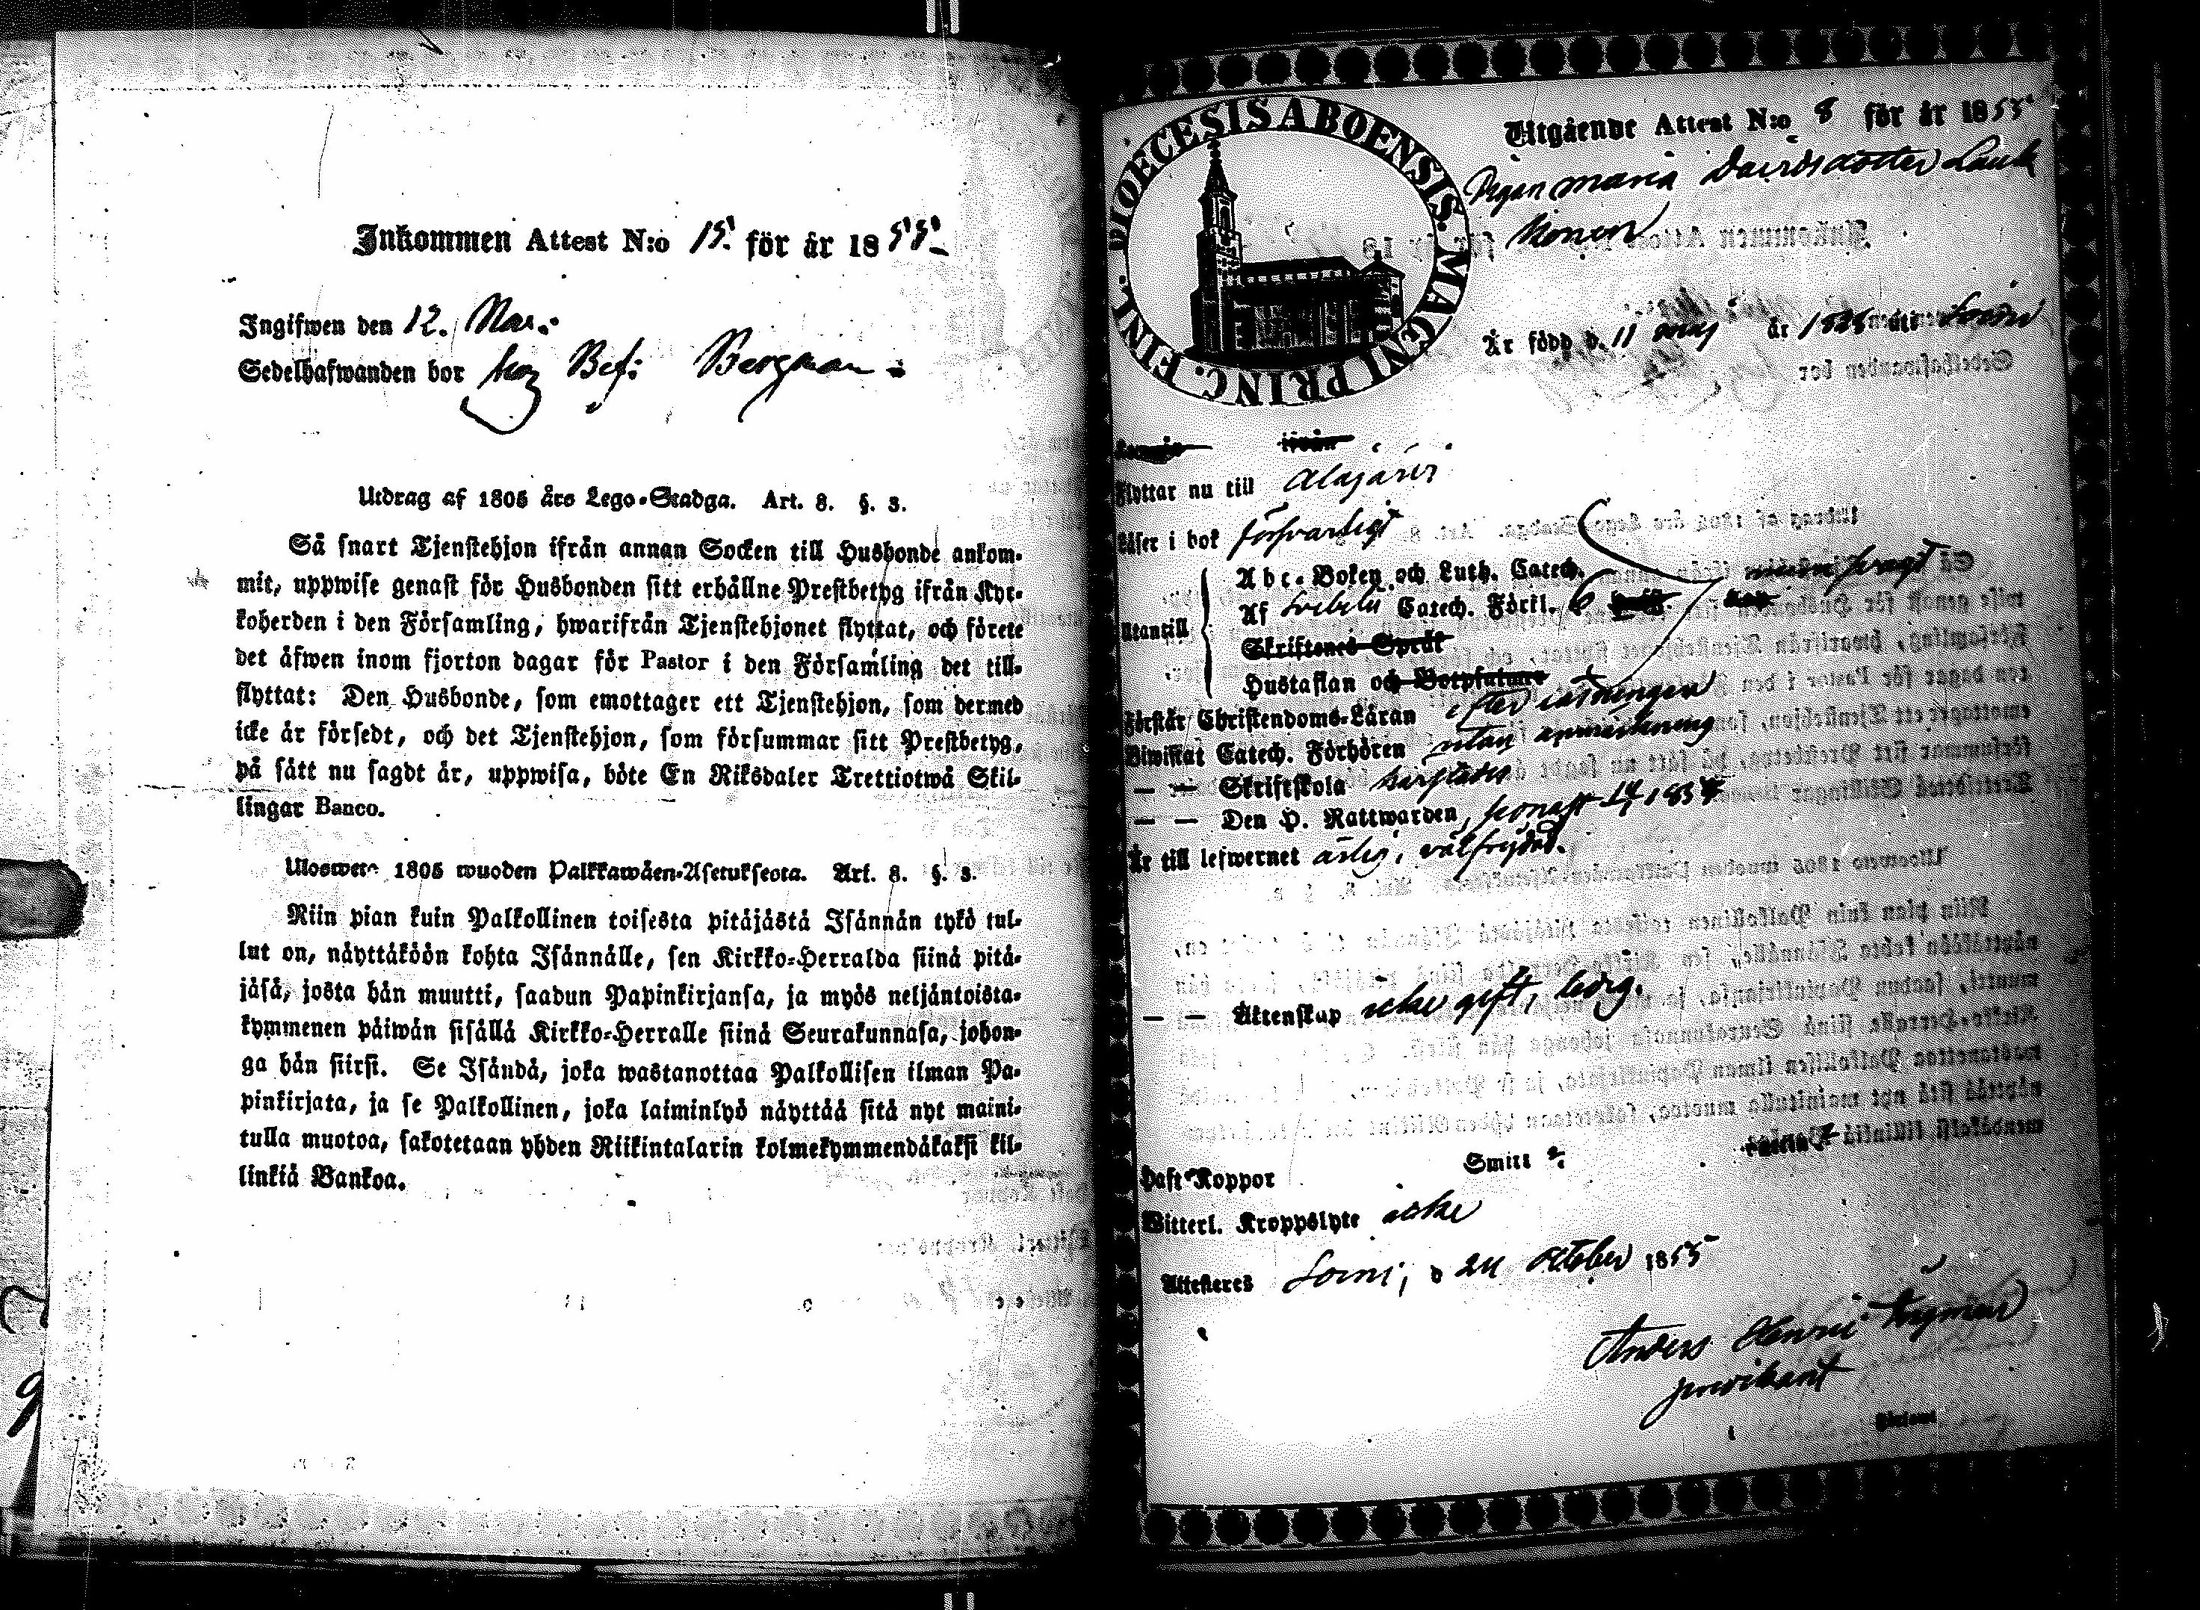 Inkommen Attest N:o 15. för år 1855
Ingifwen den 12. Nov.
Sedelhafwanden bor hos Bef: Bergman
Utdrag af 1805 års Lego-Stadga. Art. 8. §. 3.
Så snart Tjenstehjon ifrån annan Socken till Husbonde ankom-
mit, uppwise genast för Husbonden sitt erhållne Prestbetyg ifrån Kyr-
koherden i den Församling, hwarifrån Tjenstehjonet flyttat, och förete
det äfwen inom fjorton dagar för Pastor i den Församling det till-
flyttat: Den Husbonde, som emottager ett Tjenstehjon, som dermed
icke är försedt, och det Tjenstehjon, som försummar sitt Prestbetyg,
på sätt nu sagdt är, uppwisa, böte En Riksdaler Trettiotwå Skil-
lingar Banco.
Uloswete 1805 wuoden Palkkawäen-Asetuksesta. Art. 8. §. 3.
Niin pian kuin Palkollinen toisesta pitäjästä Isännän tykö tul-
lut on, näyttäköön kohta Isännälle, sen Kirkko-Herralda siinä pitä-
jäsä, josta hän muutti, saadun Papinkirjansa, ja myös neljäntoista-
kymmenen päiwän sisällä Kirkko-Herralle siinä Seurakunnasa, johon-
ga hän siirsi. Se Isändä, joka wastanottaa Palkollisen ilman Pa-
pinkirjata, ja se Palkollinen, joka laiminlyö näyttää sitä nyt maini-
tulla muotoa, sakotetaan yhden Riikintalarin kolmekymmendäkaksi kil-
linkiä Bankoa.
DIOECESIS ABOENSIS. MAGNI PRINC. FINL.
Utgående Attest N:o 8 för år 1855
Pigan Maria Davidsdotter Lauk
konen
Är född d. 11 maj år 1828 uti Soini
Flyttar nu till Alajärvi
Läser i bok försvarligt
Abc-Boken och Luth. Catech.
Af Svebelii Catech. Förkl. 6
Utantill
Skriftenes Språk
Hustaflan och Botpsalmer
Förstår Christendoms-Läran efter läsningen
Biwistat Catech. Förhören utan anmärkning
— — Skriftskola
— — Den H. Nattwarden, 185
Är till lefwernet ärlig, välfrejdad.
— — Äktenskap icke gift, ledig.
Haft Koppor
Smitt
Witterl. Kroppslyte icke
Attesteres Soini, d 24 October 1855
Anders Henric